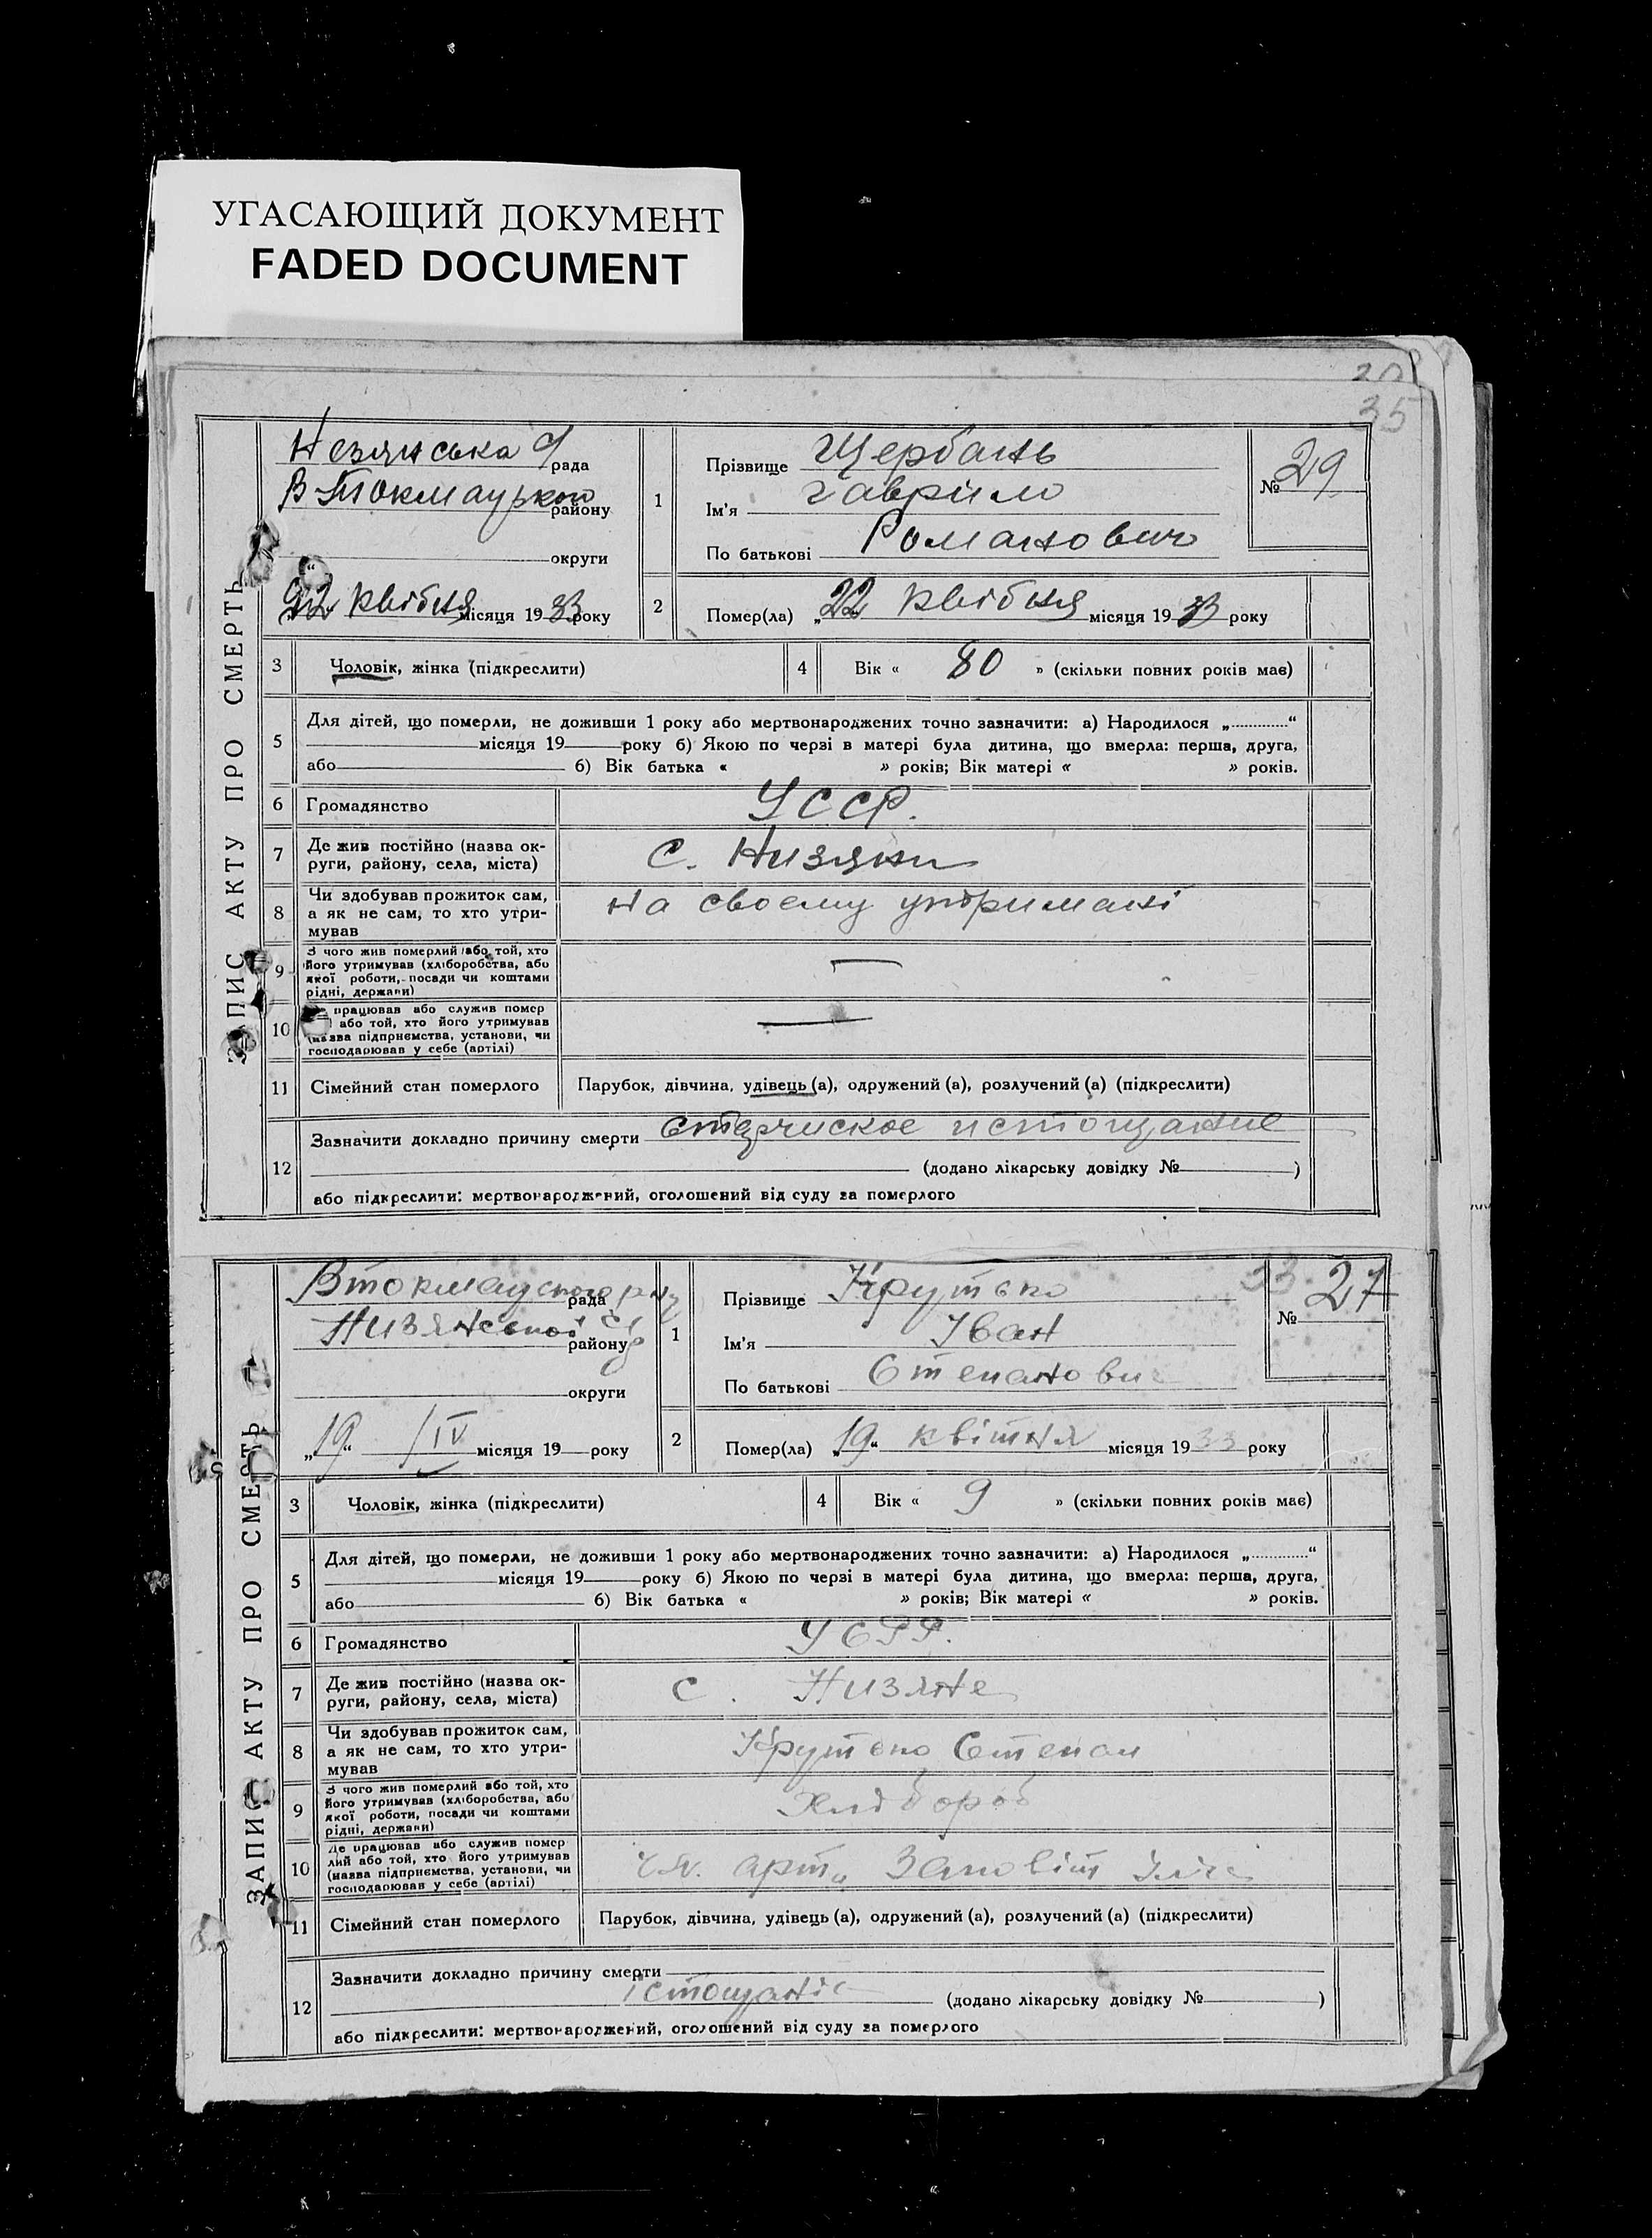 УГАСАЮЩИЙ ДОКУМЕНТ
FADED DOCUMENT
35
ЗАПИС АКТУ ПРО СМЕРТЬ
рада
В-Токмацького
району
округи
22 квітня місяця 1933 року
1
Прізвище Щербань
Ім'я Гаврило
По батькові Романович
№ 29
2
Помер(ла) „22 квітня місяця 1933 року
3 Чоловік, жінка (підкреслити)
4 Вік « 80 » (скільки повних років має)
5 Для дітей, що померли, не доживши 1 року або мертвонароджених точно зазначити: а) Народилося „ “
місяця 19 року б) Якою по черзі в матері була дитина, що вмерла: перша, друга,
або б) Вік батька « » років; Вік матері « » років.
6 Громадянство УССР.
7 Де жив постійно (назва ок-
руги, району, села, міста) с. Низяни
8 Чи здобував прожиток сам,
а як не сам, то хто утри-
мував
на своему утримані
9 З чого жив померлий або той, хто
його утримував (хліборобства, або
якої роботи, посади чи коштами
рідні, держави) —
10 працював або служив помер
або той, хто його утримував
(назва підприємства, установи, чи
господарював у себе (артілі) —
11 Сімейний стан померлого Парубок, дівчина, удівець (а), одружений (а), розлучений (а) (підкреслити)
12 Зазначити докладно причину смерти истощание
(додано лікарську довідку № )
або підкреслити: мертвонароджений, оголошений від суду за померлого
ЗАПИС АКТУ ПРО СМЕРТЬ
рада
району
округи
„19“ /IV місяця 19 року
1
Прізвище Крутько
Ім'я Іван
По батькові Степанови
33
№ 27
2
Помер(ла) „19“ квітня місяця 1933 року
3 Чоловік, жінка (підкреслити)
4 Вік « 9 » (скільки повних років має)
5 Для дітей, що померли, не доживши 1 року або мертвонароджених точно зазначити: а) Народилося „ “
місяця 19 року б) Якою по черзі в матері була дитина, що вмерла: перша, друга,
або б) Вік батька « » років; Вік матері « » років.
6 Громадянство УСРР.
7 Де жив постійно (назва ок-
руги, району, села, міста) с. Низяне
8 Чи здобував прожиток сам,
а як не сам, то хто утри-
мував
Крутько Степан
9 З чого жив померлий або той, хто
його утримував (хліборобства, або
якої роботи, посади чи коштами
рідні, держави)
Хлібороб
10 Де працював або служив помер
лий або той, хто його утримував
(назва підприємства, установи, чи
господарював у себе (артілі)
арт. Заповіт Ілліча
11 Сімейний стан померлого Парубок, дівчина, удівець (а), одружений (а), розлучений (а) (підкреслити)
12 Зазначити докладно причину смерти
істощаніє (додано лікарську довідку № )
або підкреслити: мертвонароджений, оголошений від суду за померлого